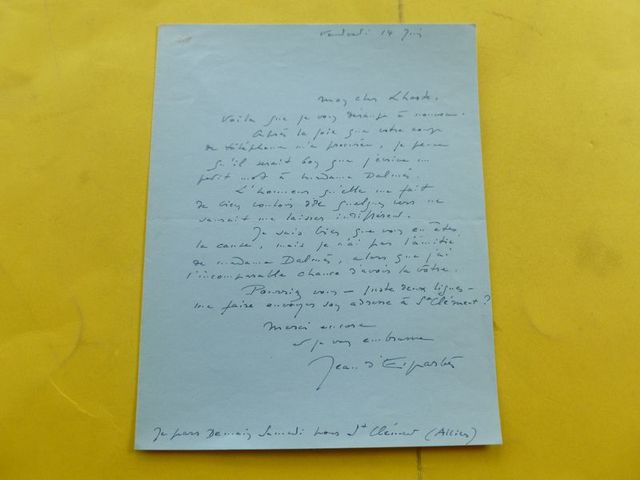 Vendredi 14 Juin
mon cher Lhoste.
Voilà que je vous dérange à nouveau.
Après la joie que votre coup
de téléphone m'a procurée, je pense
qu'il serait bon que j'écrive un
petit mot à madame Dalmès.
L'honneur qu'elle me fait
de bien vouloir dire quelques vers ne
saurait me laisser indifférent.
Je sais bien que vous en êtes
la cause, mais je n'ai pas l'amitié
de madame Dalmès, alors que j'ai
l'incomparable chance d'avoir la vôtre.
Pourriez vous - juste deux lignes -
me faire envoyer son adresse à St Clément ?
Merci encore
et je vous embrasse
Jean d'Esparbès
Je pars Demain Samedi pour St Clément (Allier)